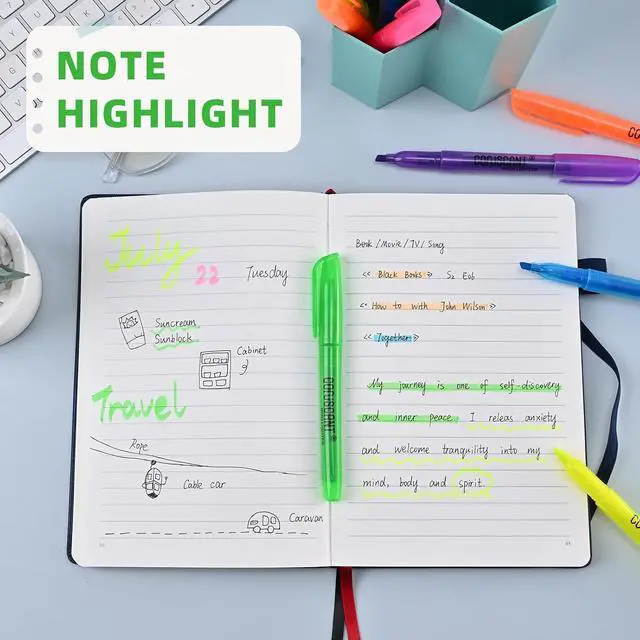 NOTE
HIGHLIGHT
July
22
Tuesday
Suncream
Sunblock
Cabinet
Travel
Rope
Cable car
Caravan
Book / Movie / TV / Song
<< Black Books >> S2 E06
<< How to with John Wilson >>
<< Together >>
My journey is one of self-discovery
and inner peace. I releas anxiety
and welcome tranquility into my
mind, body and spirit.